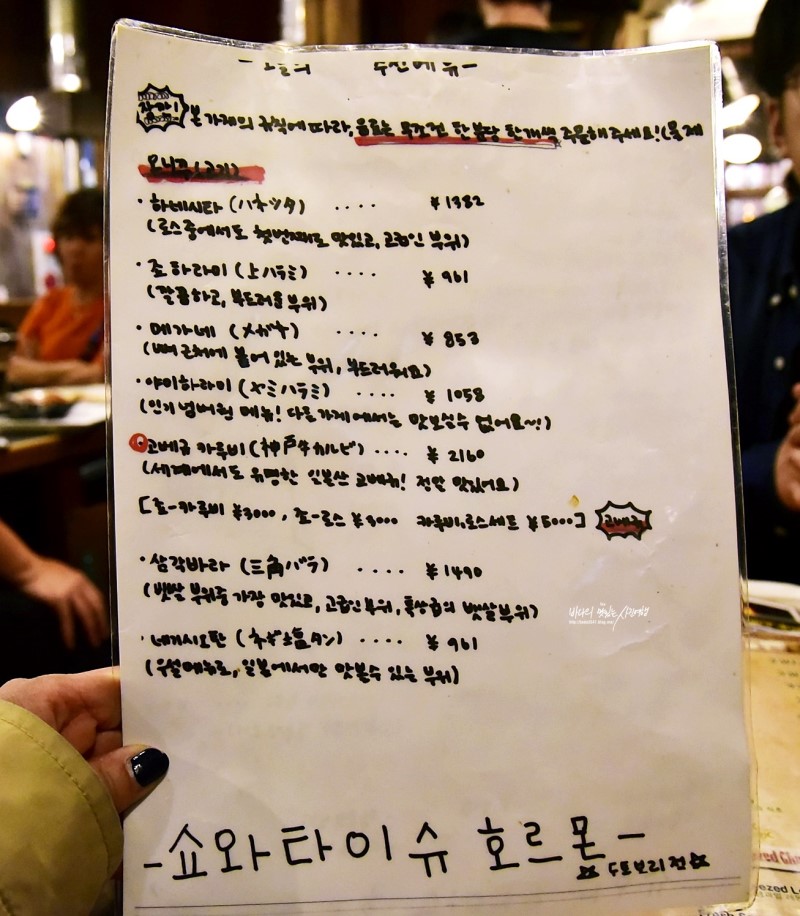 - 오늘의 추천메뉴 -
잠깐! 본 가게의 규칙에 따라, 음료는 무조건 한분당 한개씩 주음해주세요! (물제
오니쿠 (고기)
· 하네시타 (ハネシタ) .... ¥1382
(로스중에서도 첫번째로 맛있고, 고급인 부위)
· 죠하라미 (上ハラミ) .... ¥961
(깔끔하고, 부드러운 부위)
· 메가네 (メガネ) .... ¥853
(뼈 근처에 붙어 있는 부위, 부드러워요)
· 야미하라미 (ヤミハラミ) .... ¥1058
(인기 넘버원 메뉴! 다른가게에서는 맛보실수 없어요~!)
· 고베규 카루비 (神戸牛カルビ) .... ¥2160
(세계에서도 유명한 일본산 고베규! 정말 맛있어요)
[죠-카루비 ¥3000, 죠-로스 ¥3000 카루비,로스세트 ¥5000] 고베규
· 삼각바라 (三角バラ) .... ¥1490
(뱃살 부위중 가장 맛있고, 고급인부위, 특상급의 뱃살부위)
· 네기시오탄 (ネギ塩タン) .... ¥961
(우설메뉴로, 일본에서만 맛볼수 있는 부위)
- 쇼와타이슈 호르몬 -
☆ 도톤보리점 ☆